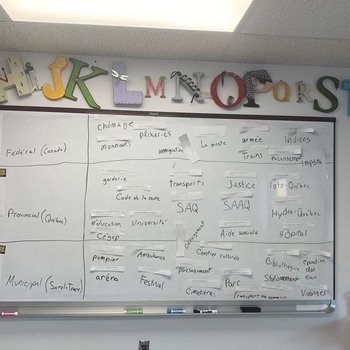 H I J K L M N O P Q R S T
chômage
pêcheries
monnaies
immigration
La poste
armée
Indiens
Trains
recensement
impôts
Fédéral (Canada)
garderie
transports
Justice
loto-Québec
Code de la route
SAQ
SAAQ
Provincial (Québec)
Hydro-Québec
éducation
Université
Cégep
Aide sociale
Hôpital
Déneigement
pompier
Ambulance
Centres culturels
Bibliothèque
épuration des eaux
aréna
Festival
Parc
Stationnement
Municipal (Sorel-Tracy)
Cimetières
Transport en commun
Vidanges